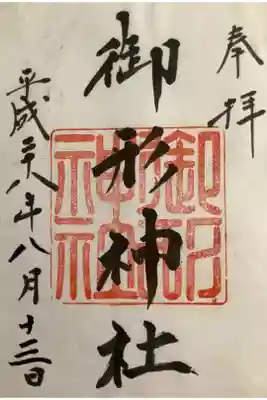 奉拝
御形神社
御形神社
平成二十八年八月十三日